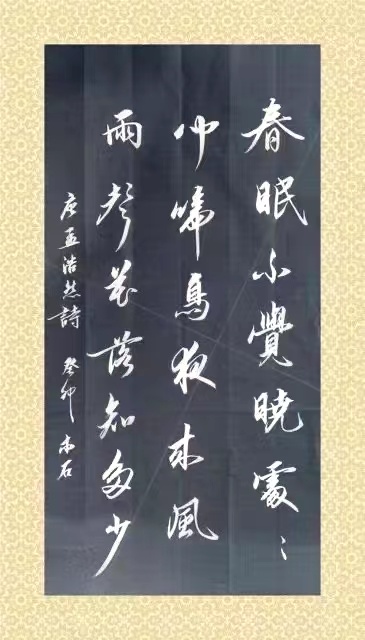 春眠不覺曉處〻
聞啼鳥夜來風
雨聲花落知多少
唐孟浩然詩 癸卯 木石